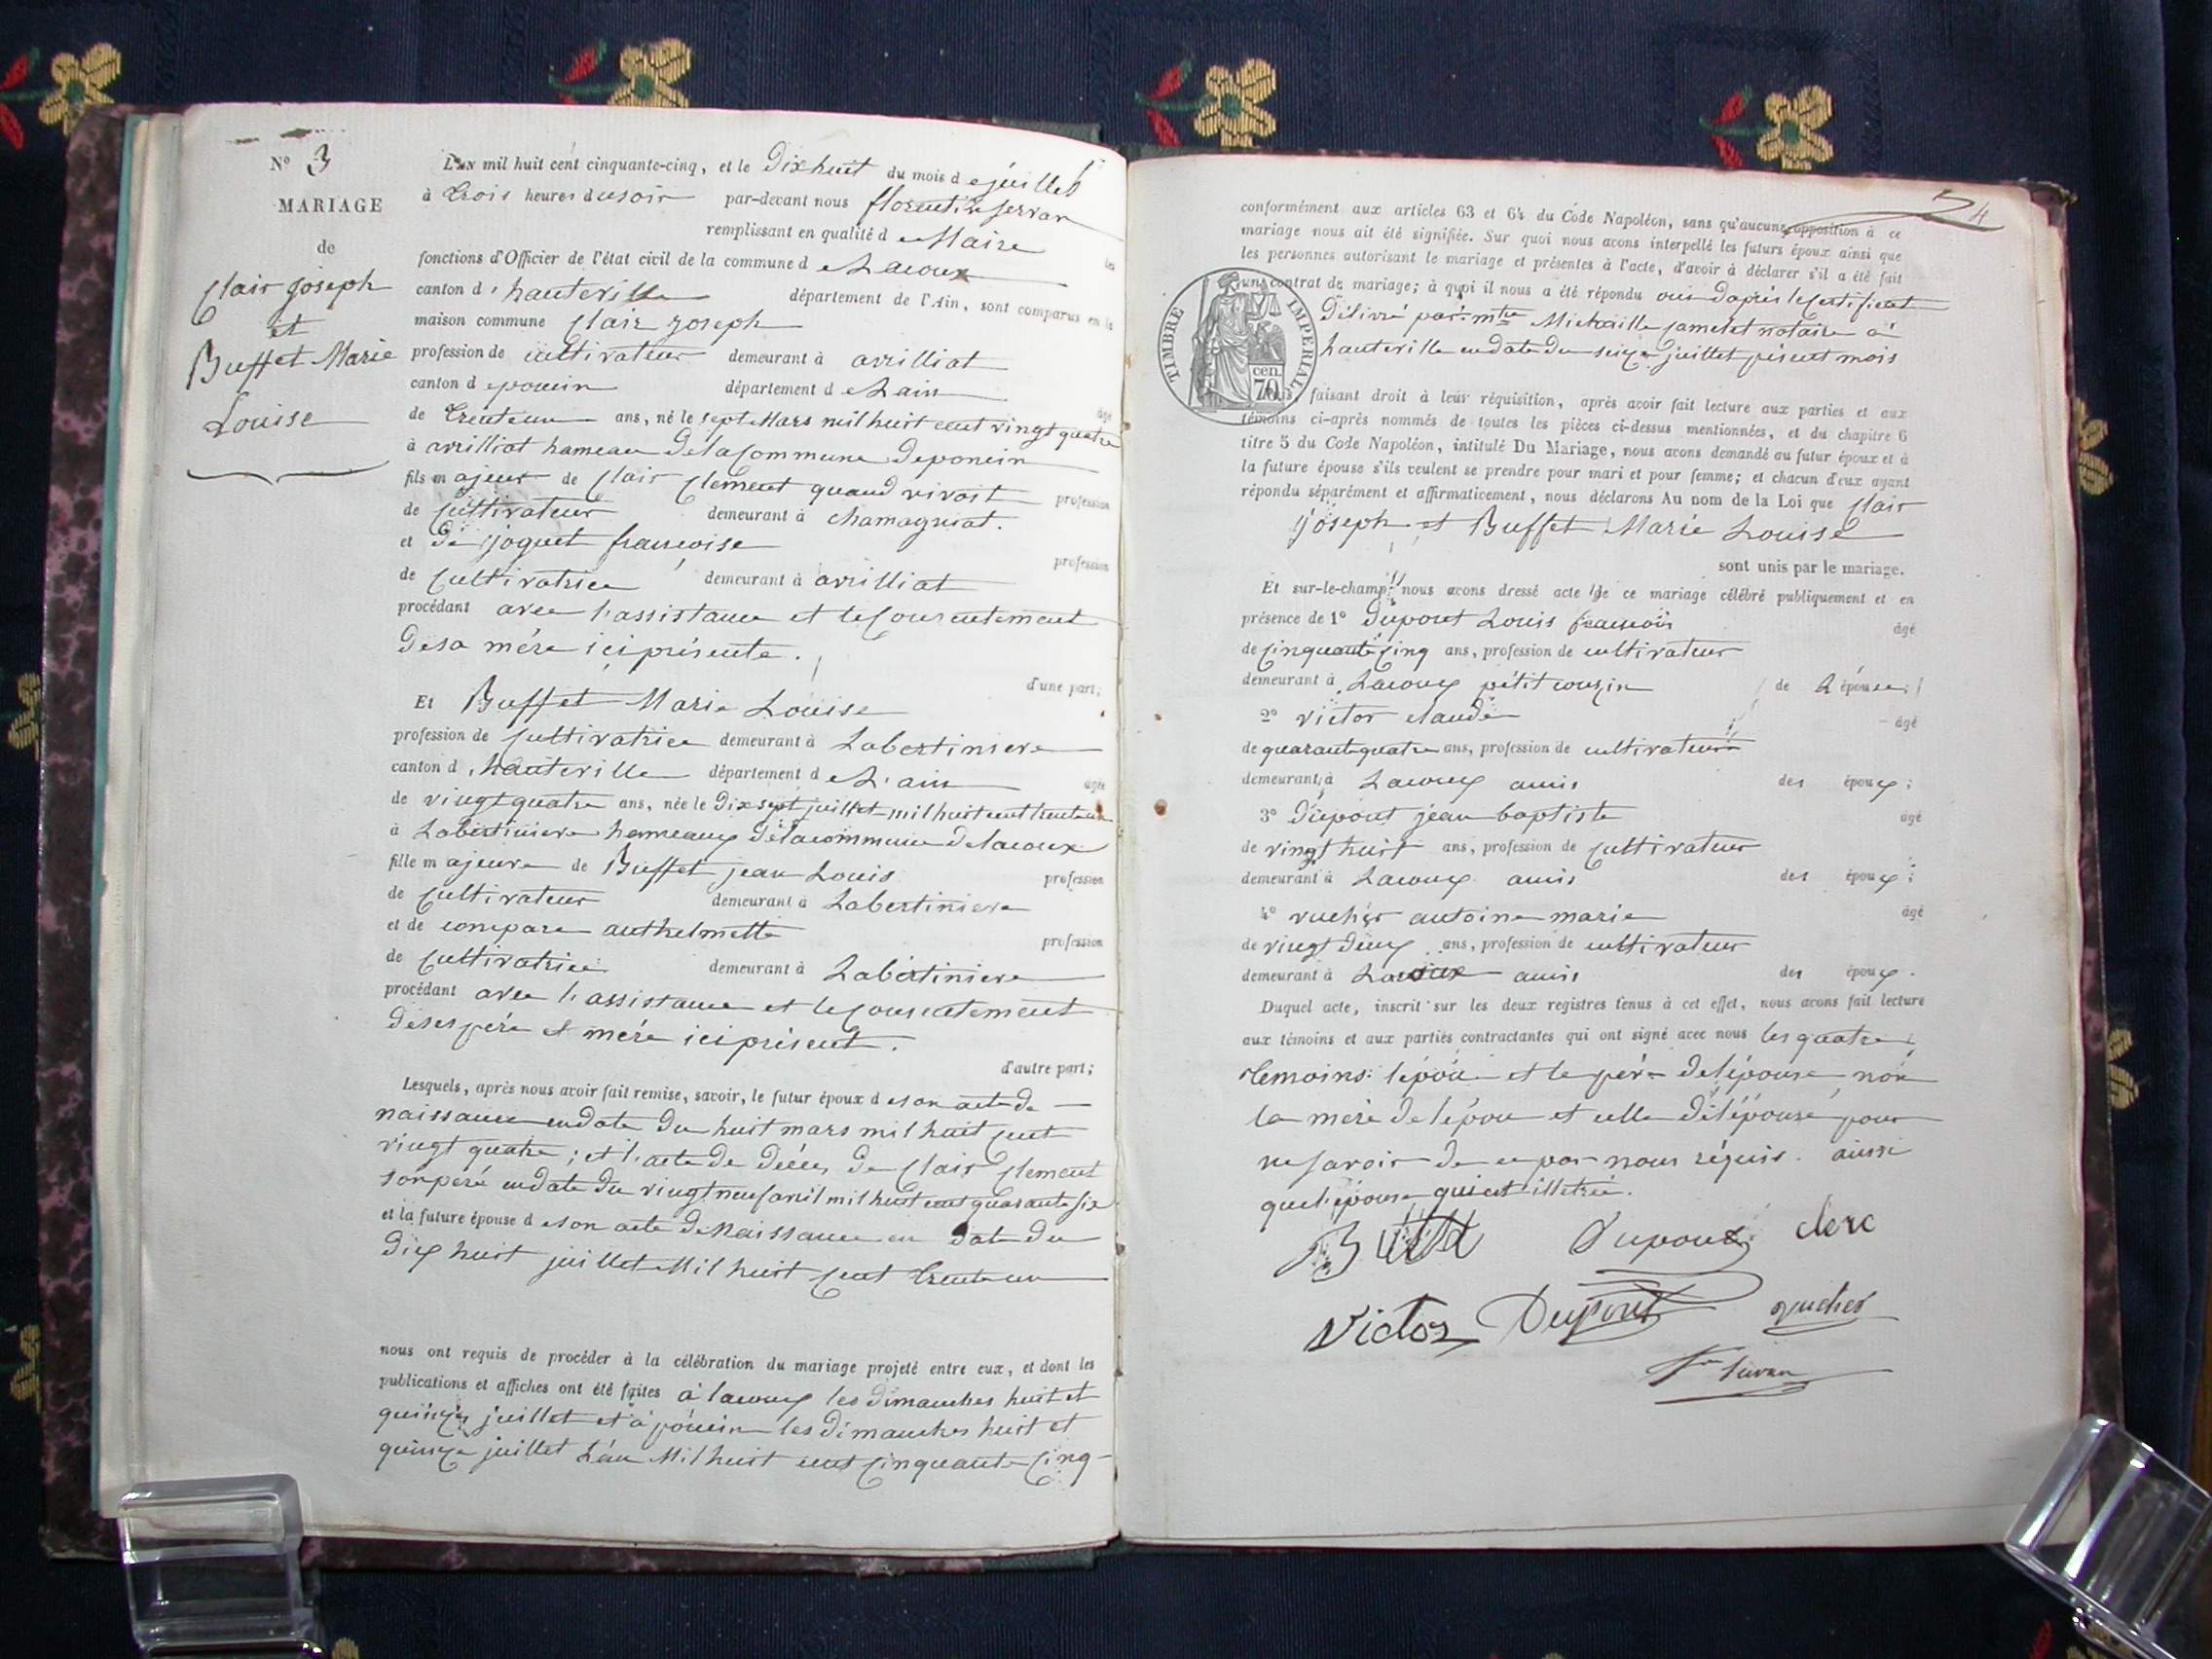 N° 3
MARIAGE
de
Clair joseph
et
Buffet Marie
Louise
L'AN mil huit cent cinquante-cinq, et le Dixhuit du mois de juillet
à trois heures du soir par-devant nous florentin servan
remplissant en qualité de Maire les
fonctions d'Officier de l'état civil de la commune de Lacoux
canton d'hauteville département de l'Ain, sont comparus en la
maison commune Clair joseph
profession de cultivateur demeurant à avrilliat
canton de poncin département de Lain âgé
de trenteun ans, né le sept Mars mil huit cent vingt quatre
à avrilliat hameau de la Commune de poncin
fils majeur de Clair Clement quand vivait profession
de Cultivateur demeurant à chamagniat.
et de joguet francoise profession
de Cultivatrice demeurant à avrilliat
procédant avec l'assistance et le Consentement
de sa mére ici présente.
d'une part;
Et Buffet Marie Louise
profession de Cultivatrice demeurant à Labertiniere
canton d'hauteville département de L'ain âgée
de vingt quatre ans, née le Dix sept juillet mil huit cent trenteun
à Labertiniere hameaux de la commune de lacoux
fille majeure de Buffet jean Louis profession
de Cultivateur demeurant à Labertiniere
et de compare anthelmette profession
de Cultivatrice demeurant à Labertiniere
procédant avec l'assistance et le Consentement
de ses pére et mére ici présent.
d'autre part;
Lesquels, après nous avoir fait remise, savoir, le futur époux de son acte de
naissance en date du huit mars mil huit cent
vingt quatre; et l'acte de décés de Clair Clement
son peré en date du vingt neuf avril mil huit cent quarante six
et la future épouse de son acte de Naissance en date du
dix huit juillet Mil huit cent trente un
nous ont requis de procéder à la célébration du mariage projeté entre eux, et dont les
publications et affiches ont été faites à lacoux les dimanches huit et
quinze juillet et à poncin les dimanches huit et
quinze juillet L'an Mil huit cent cinquante cinq
4
conformément aux articles 63 et 64 du Code Napoléon, sans qu'aucune opposition à ce
mariage nous ait été signifiée. Sur quoi nous avons interpellé les futurs époux ainsi que
les personnes autorisant le mariage et présentes à l'acte, d'avoir à déclarer s'il a été fait
un contrat de mariage; à quoi il nous a été répondu oui d'aprés le Certificat
délivré par mtre Michaille notaire à
hauteville en date du seize juillet présent mois
TIMBRE IMPERIAL
cen.
70
Nous, faisant droit à leur réquisition, après avoir fait lecture aux parties et aux
témoins ci-après nommés de toutes les pièces ci-dessus mentionnées, et du chapitre 6
titre 5 du Code Napoléon, intitulé Du Mariage, nous avons demandé au futur époux et à
la future épouse s'ils veulent se prendre pour mari et pour femme; et chacun d'eux ayant
répondu séparément et affirmativement, nous déclarons Au nom de la Loi que Clair
joseph et Buffet Marie Louise
sont unis par le mariage.
Et sur-le-champ nous avons dressé acte de ce mariage célébré publiquement et en
présence de 1° Dupont Louis francois âgé
de Cinquante Cinq ans, profession de cultivateur
demeurant à Lacoux pétit couzin de L'épouse;
2° victor claude âgé
de quarante quatre ans, profession de cultivateur
demeurant à Lacoux amis des époux;
3° Dupont jean baptiste âgé
de vingt huit ans, profession de Cultivateur
demeurant à Lacoux amis des époux;
4° vucher antoine marie âgé
de vingt deux ans, profession de cultivateur
demeurant à Lacoux amis des époux.
Duquel acte, inscrit sur les deux registres tenus à cet effet, nous avons fait lecture
aux témoins et aux parties contractantes qui ont signé avec nous les quatre
temoins: l'épou et le pére de l'épouse non
la mere de l'épou et celle de l'épouse pour
ne savoir de ce par nous réquis. aussi
que l'épouse qui est illetrée.
Buffet Dupont clerc
Victor Dupont vucher
Servan